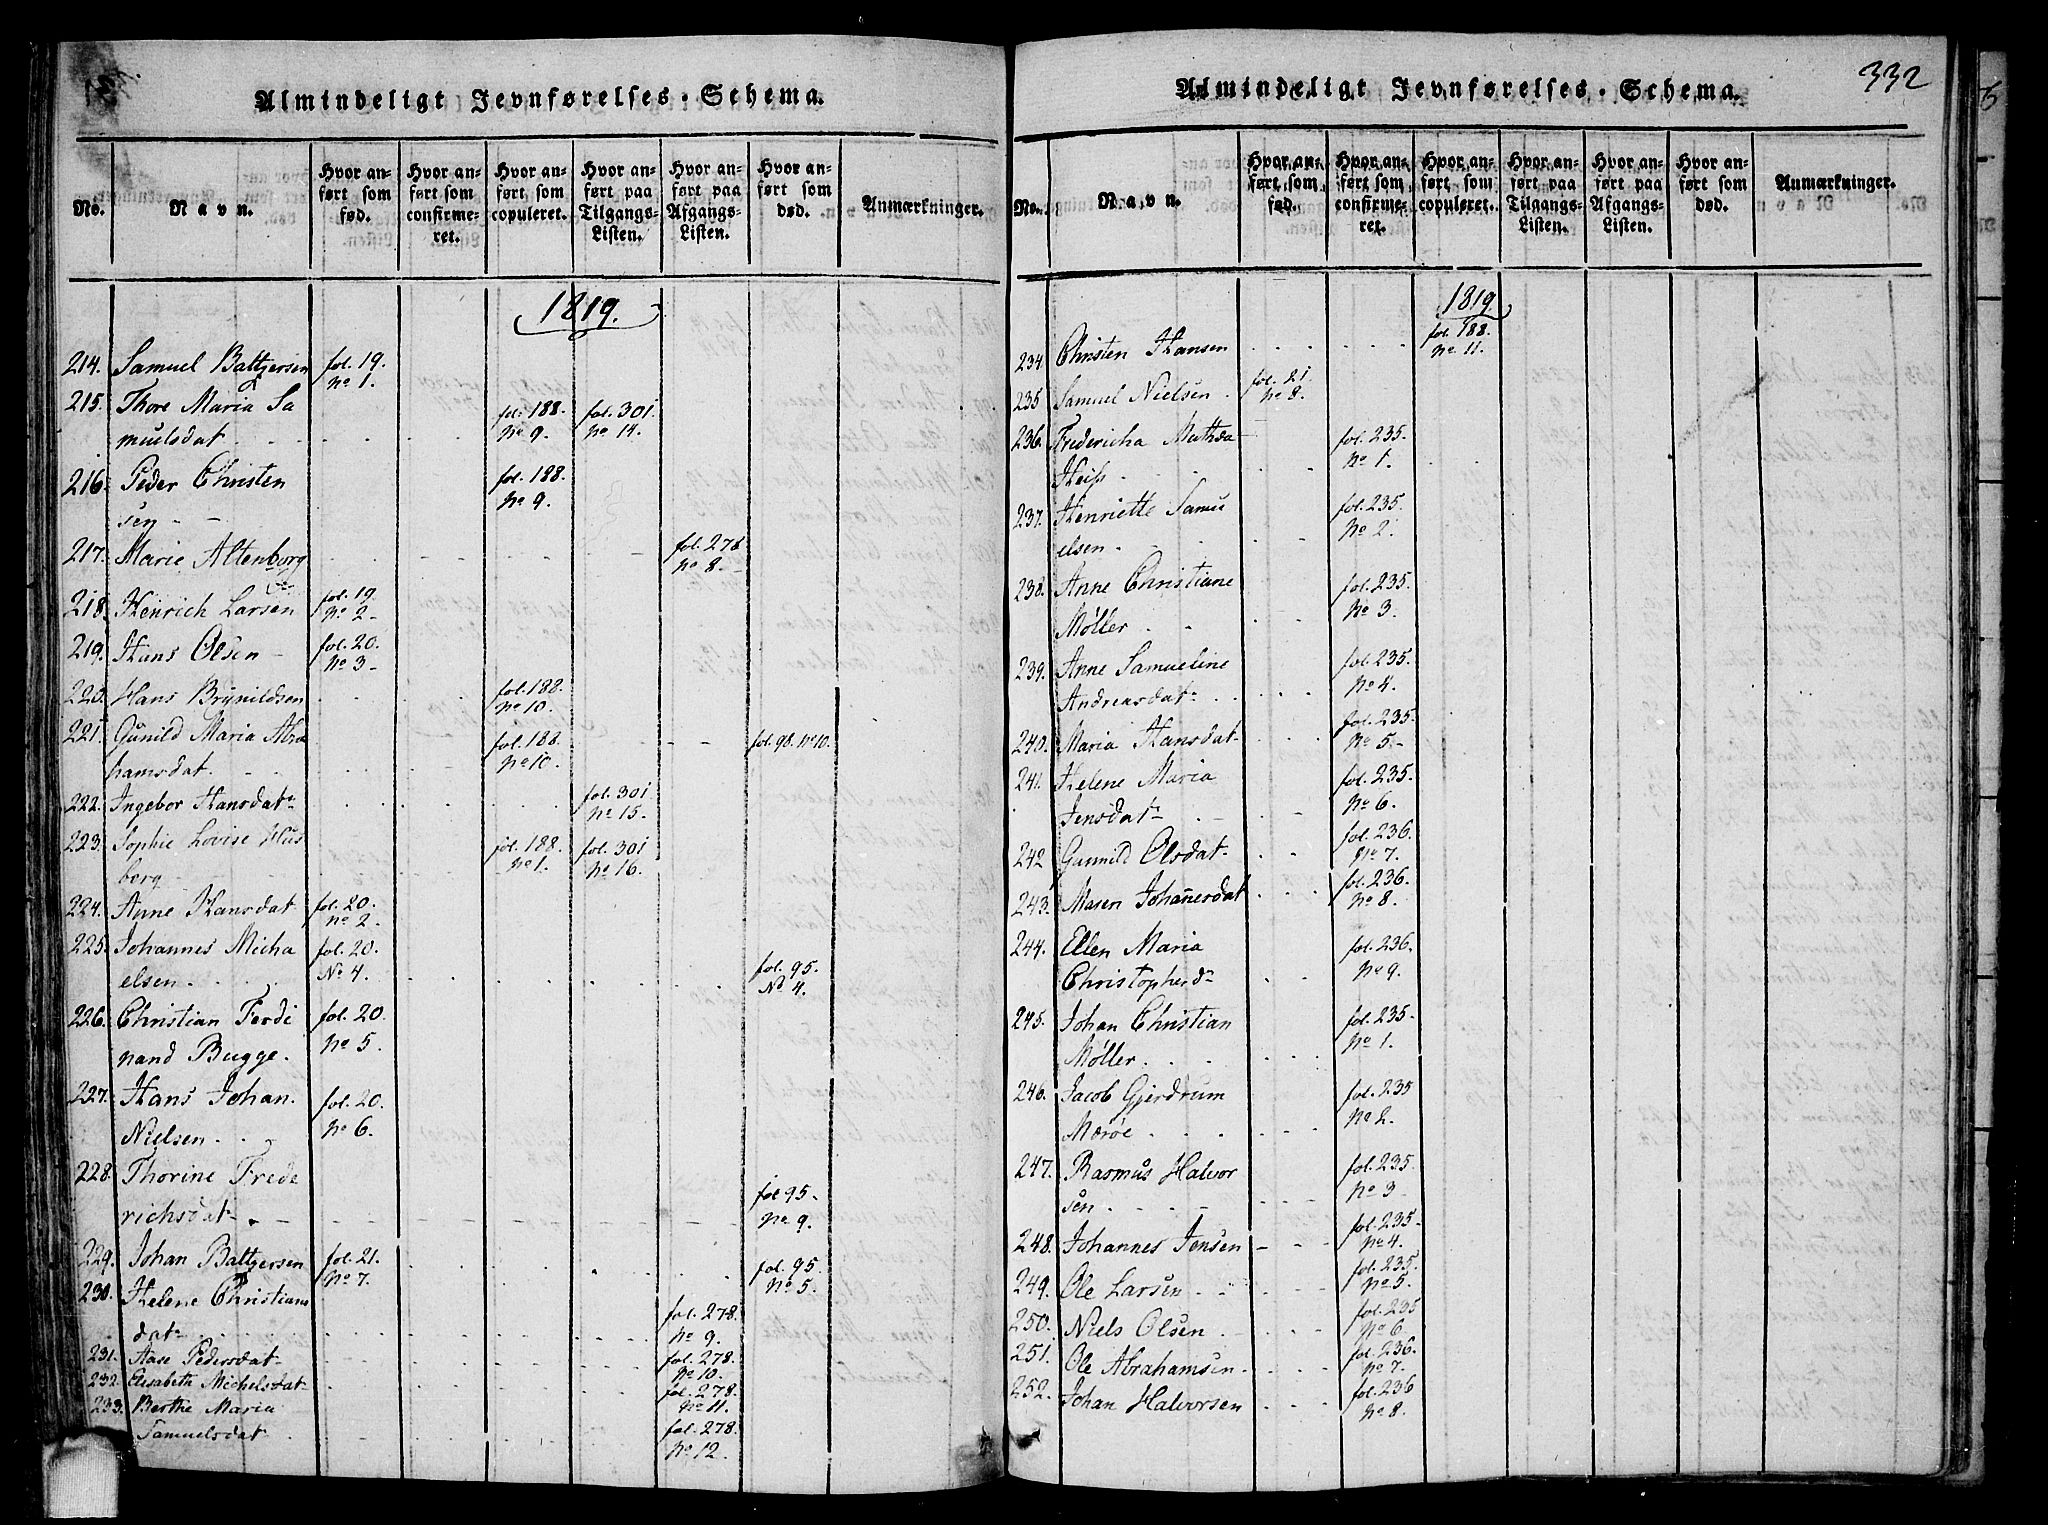 Almindeligt Jevnførelses-Schema.
No.
Navn.
Hvor anført som fød.
Hvor anført som confirmeret.
Hvor anført som copuleret.
Hvor anført paa Tilgangs-Listen.
Hvor anført paa Afgangs-Listen.
Hvor anført som død.
Anmærkninger.
1819.
214. Samuel Baltzersen fol. 19. No 1.
215. Thore Maria Sa
muelsdat fol. 188. No 9. fol. 301. No 14.
216. Peder Christen
sen fol. 188. No 9.
217. Marie Altenborg fol. 278. No 8.
218. Henrich Larsen fol. 19. No 2
219. Hans Olsen fol. 20. No 3
220. Hans Brynildsen fol. 188. No 10.
221. Gunild Maria Abra
hamsdat. fol. 188. No 10. fol. 98. No 10.
222. Ingebor Hansdat fol. 301 No 15.
223. Sophie Lovise Hus
borg fol. 188. No 1. fol. 301 No 16.
224. Anne Hansdat fol. 20. No 2.
225. Johannes Micha
elsen. fol. 20. No 4. fol. 95. No 4.
226. Christian Ferdi
nand Bugge. fol. 20. No 5.
227. Hans Johan
Nielsen. fol. 20. No 6.
228. Thorine Frede
richsdat fol 95. No 9.
229. Johan Baltzersen fol. 21. No 7. fol. 95. No 5.
230. Helene Christians
dat fol. 278. No 9.
231. Aase Pedersdat fol. 278. No 10.
232. Elisabeth Michelsdat fol. 278. No 11.
233. Berthe Maria
Samuelsdat fol. 278. No 12.
Almindeligt Jevnførelses-Schema.
332
No.
Navn.
Hvor anført som fød.
Hvor anført som confirmeret.
Hvor anført som copuleret.
Hvor anført paa Tilgangs-Listen.
Hvor anført paa Afgangs-Listen.
Hvor anført som død.
Anmærkninger.
1819
234. Christen Hansen fol. 188. No 11.
235 Samuel Nielsen fol. 21. No 8.
236. Fredericha Mathea
Heiss. fol. 235. No 1.
237. Henriette Samu
elsen. fol. 235. No 2.
238. Anne Christiane
Møller fol. 235. No 3.
239. Anne Samueline
Andreasdat fol. 235. No 4.
240. Maria Hansdat fol. 235. No 5.
241. Helene Maria
Jensdat fol. 235. No 6.
242 Gunnild Olsdat fol. 236. No 7.
243. Maren Johannesdat fol. 236. No 8.
244. Ellen Maria
Christopherd fol. 236. No 9.
245. Johan Christian
Møller. fol. 235. No 1.
246. Jacob Gjerdrum
Mørøe fol. 235 No 2.
247. Rasmus Halvor
sen fol. 235. No 3
248. Johannes Jensen fol. 235. No 4.
249. Ole Larsen fol. 235. No 5.
250. Niels Olsen fol. 235 No 6
251. Ole Abrahamsen fol. 236. No 7.
252. Johan Halvorsen fol. 236 No 8.